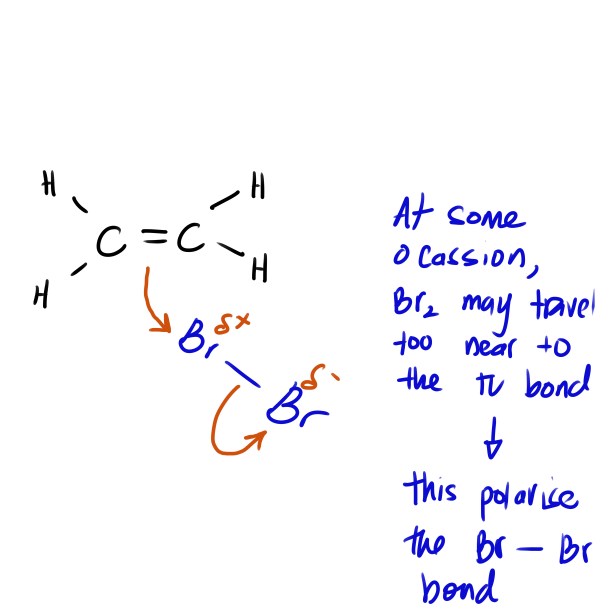 H H
C = C
H H
Br δ+
Br δ-
At some
ocassion,
Br₂ may travel
too near to
the π bond
this polarise
the Br — Br
bond